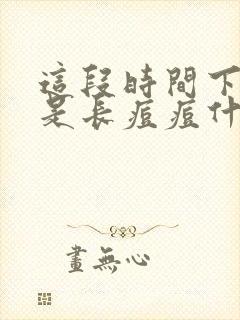 這段時間下
是長痘痘什
畫無心